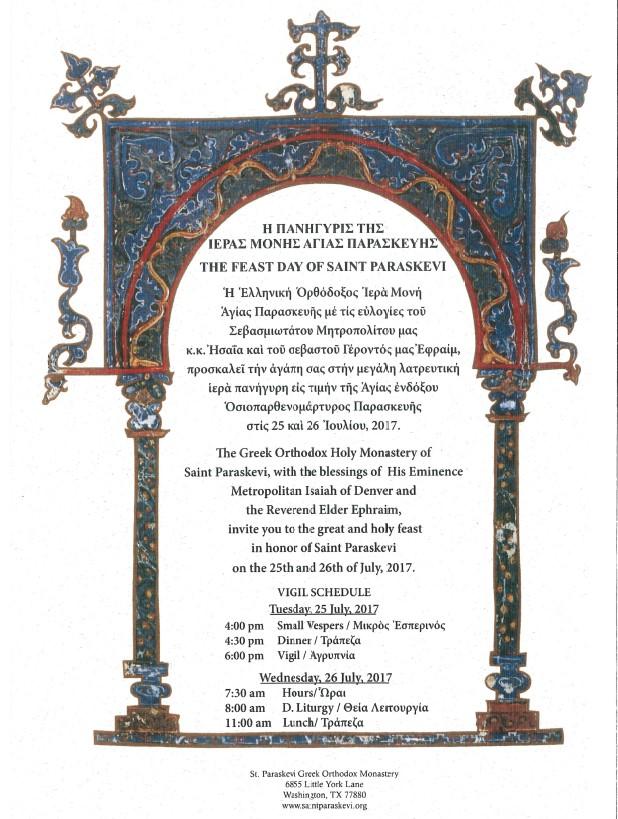 Η ΠΑΝΗΓΥΡΙΣ ΤΗΣ
ΙΕΡΑΣ ΜΟΝΗΣ ΑΓΙΑΣ ΠΑΡΑΣΚΕΥΗΣ
THE FEAST DAY OF SAINT PARASKEVI
Ἡ Ἑλληνική Ὀρθόδοξος Ἱερά Μονή
Ἁγίας Παρασκευῆς μέ τίς εὐλογίες τοῦ
Σεβασμιωτάτου Μητροπολίτου μας
κ.κ. Ἡσαΐα καί τοῦ σεβαστοῦ Γέροντός μας Ἐφραίμ,
προσκαλεῖ τήν ἀγάπη σας στήν μεγάλη λατρευτική
ἱερά πανήγυρη εἰς τιμήν τῆς Ἁγίας ἐνδόξου
Ὁσιοπαρθενομάρτυρος Παρασκευῆς
στίς 25 καί 26 Ἰουλίου, 2017.
The Greek Orthodox Holy Monastery of
Saint Paraskevi, with the blessings of His Eminence
Metropolitan Isaiah of Denver and
the Reverend Elder Ephraim,
invite you to the great and holy feast
in honor of Saint Paraskevi
on the 25th and 26th of July, 2017.
VIGIL SCHEDULE
Tuesday, 25 July, 2017
4:00 pm Small Vespers / Μικρὸς Ἑσπερινός
4:30 pm Dinner / Τράπεζα
6:00 pm Vigil / Ἀγρυπνία
Wednesday, 26 July, 2017
7:30 am Hours/Ὧραι
8:00 am D. Liturgy / Θεία Λειτουργία
11:00 am Lunch/ Τράπεζα
St. Paraskevi Greek Orthodox Monastery
6855 Little York Lane
Washington, TX 77880
www.saintparaskevi.org